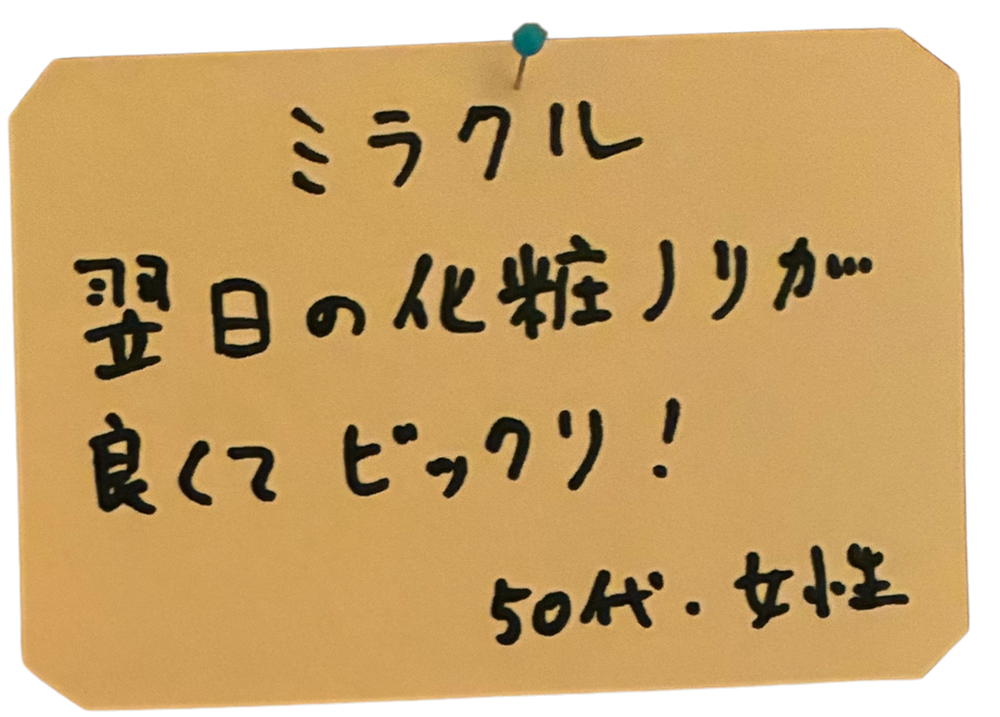 ミラクル
翌日の化粧ノリが…
良くてビックリ！
50代・女性